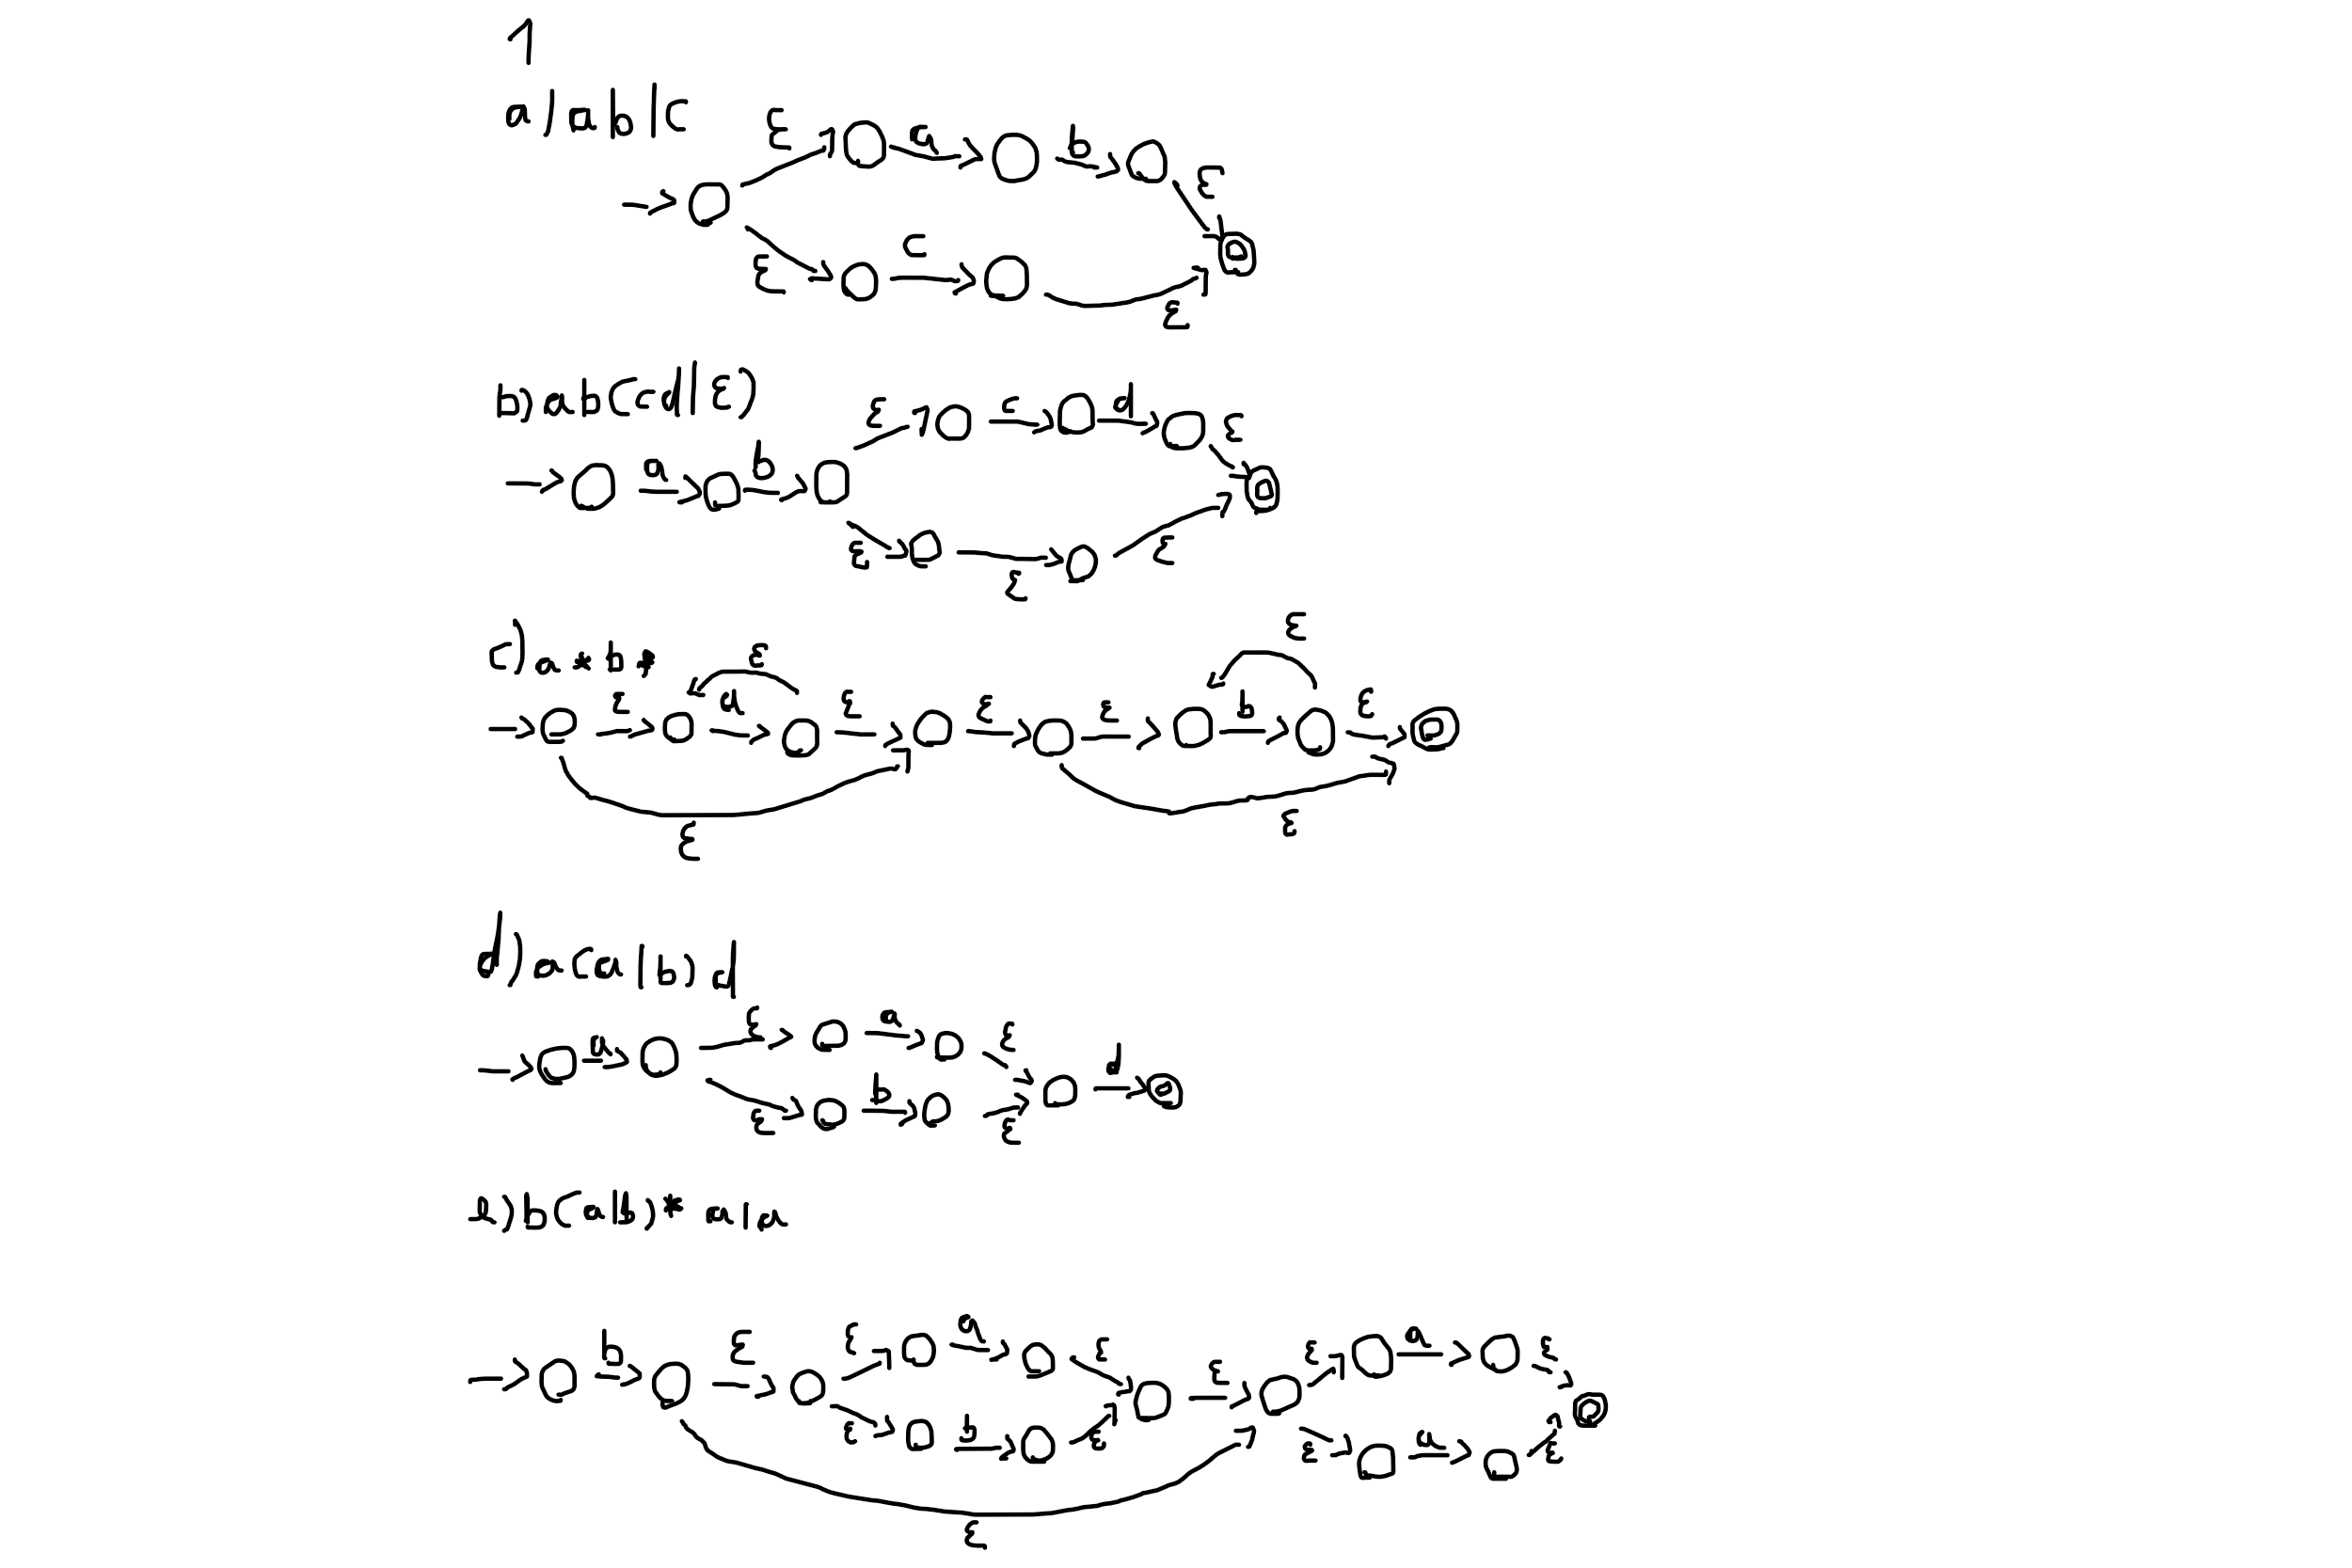 1
a) ab|c
ε a b ε
ε c ε
b) ab(cd|ε)
ε c d ε
a b
ε ε ε
c) a*b*
ε ε
ε a ε ε ε b ε
ε ε
d) a(a|b)d
ε a ε
a d
ε b ε
e) b(a|b)* a|a
b ε ε a ε ε ε a ε
ε b ε ε a ε
ε